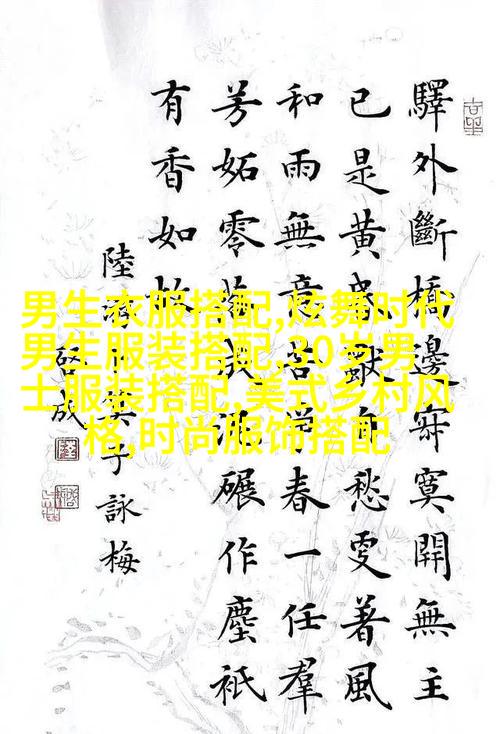 驛外斷橋邊寂寞開無主
已是黃昏獨自愁更著風
和雨無意苦爭春一任羣
芳妬零落成泥碾作塵祇
有香如故
陸游卜算子詠梅
啓成
男生衣服搭配,炫舞时代
男生服装搭配,30岁男
士服装搭配,美式乡村风
格,时尚服饰搭配